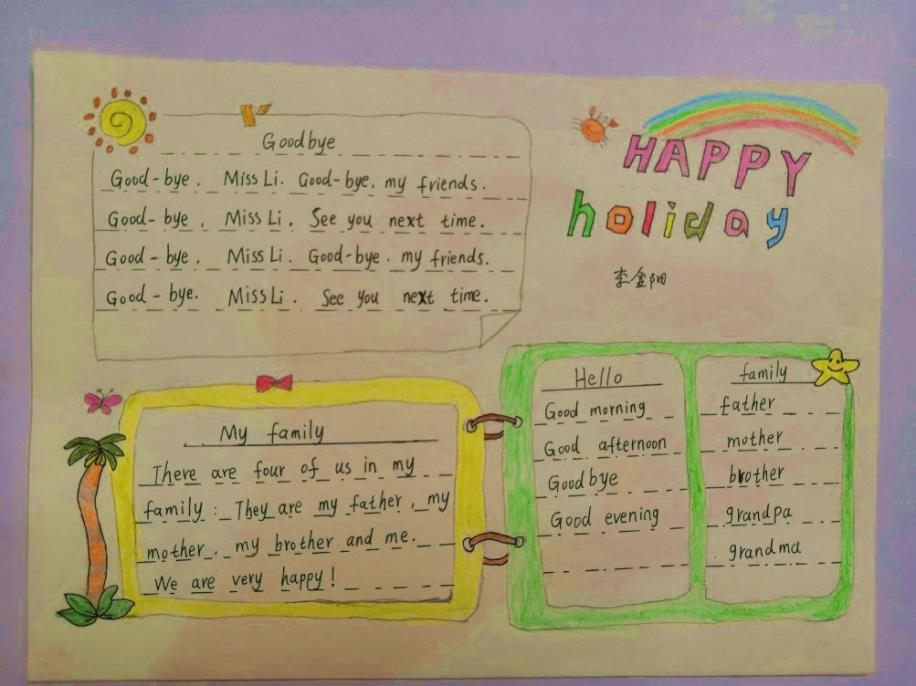 Goodbye
Good-bye. Miss Li. Good-bye. my friends.
Good-bye, Miss Li. See you next time.
Good-bye. Miss Li. Good-bye. my friends.
Good-bye. Miss Li. See you next time.
HAPPY
holiday
李金阳
My family
There are four of us in my
family: They are my father, my
mother, my brother and me.
We are very happy!
Hello
Good morning
Good afternoon
Goodbye
Good evening
family
father
mother
brother
grandpa
grandma